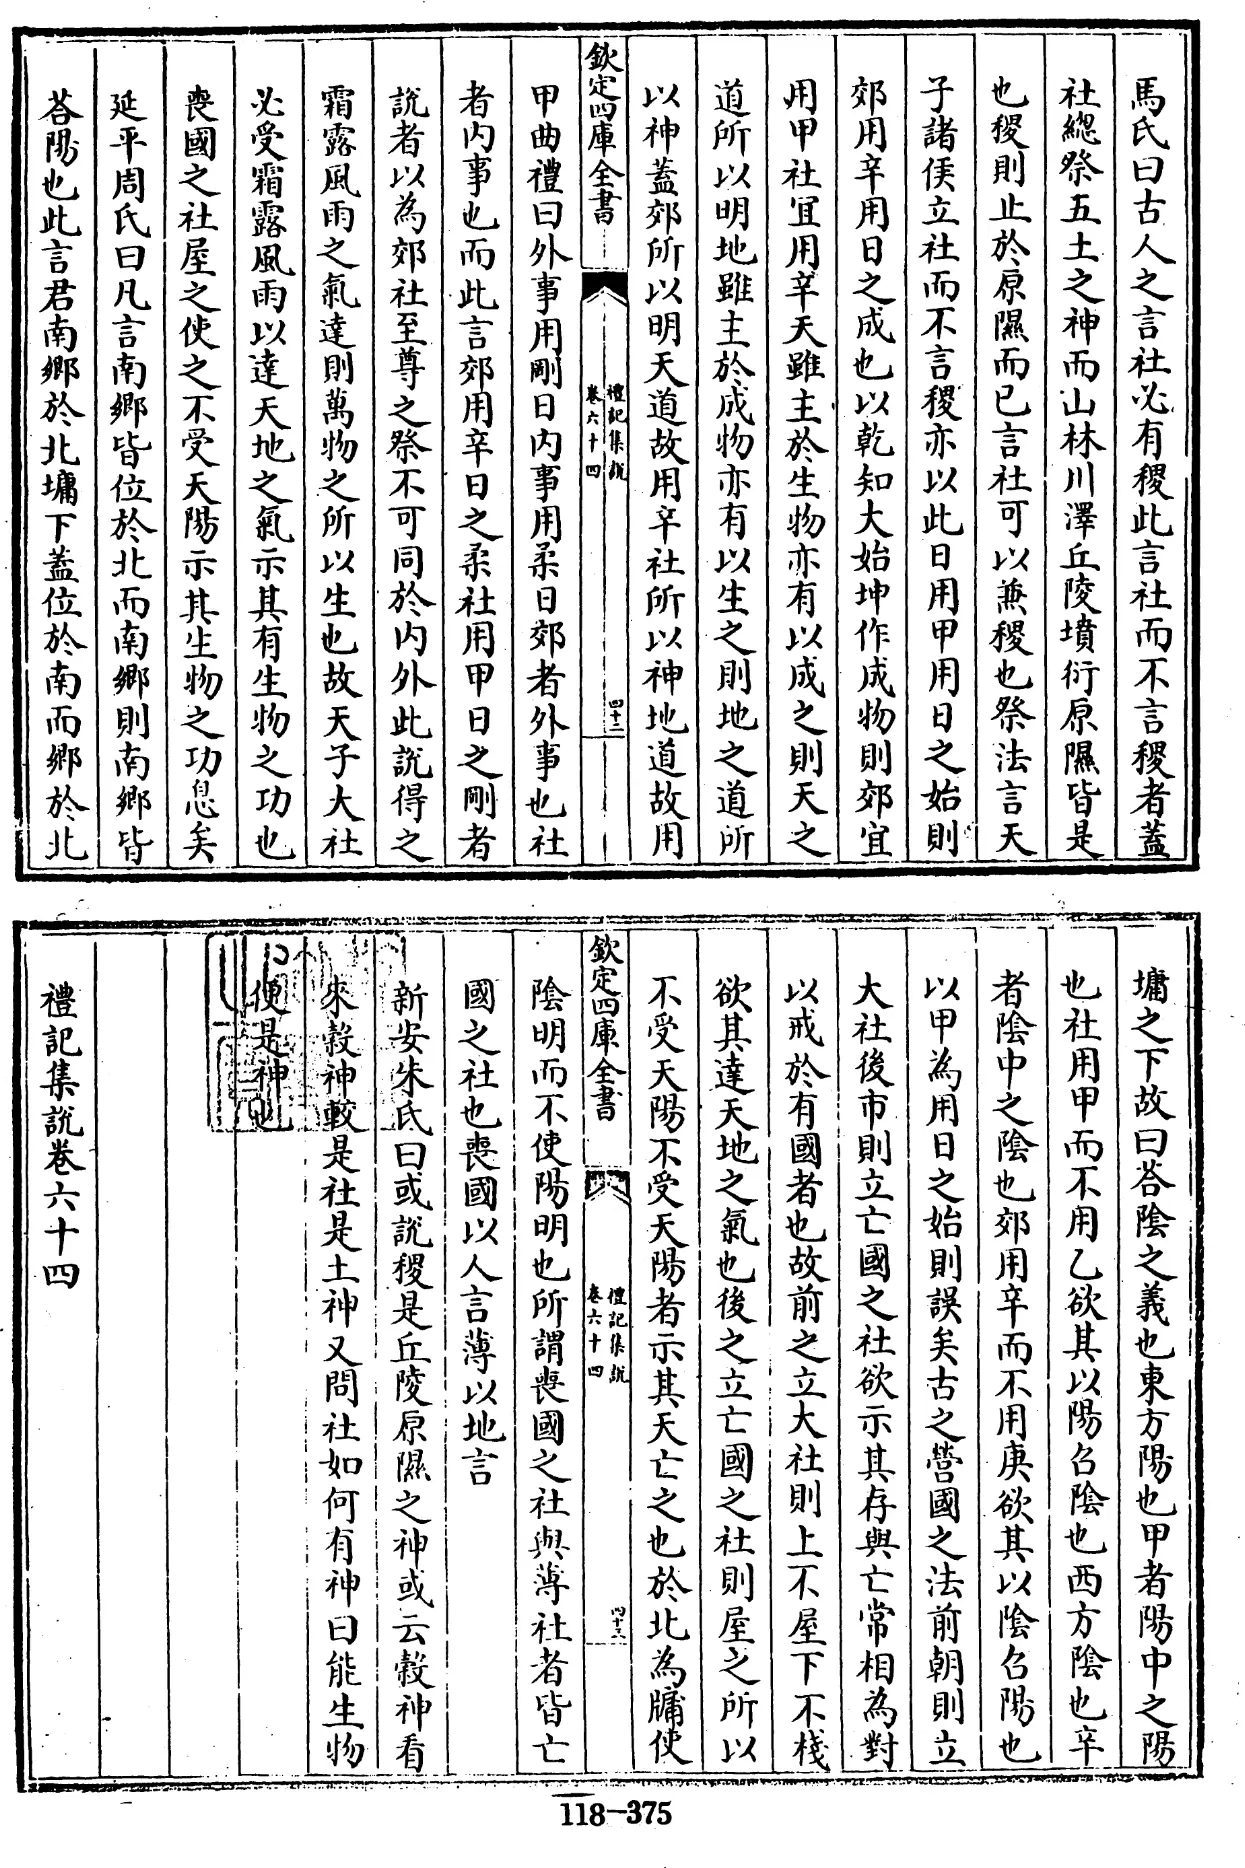 馬氏曰古人之言社必有稷此言社而不言稷者蓋
社總祭五土之神而山林川澤丘陵墳衍原隰皆是
也稷則止於原隰而已言社可以兼稷也祭法言天
子諸侯立社而不言稷亦以此日用甲用日之始則
郊用辛用日之成也以乾知大始坤作成物則郊宜
用甲社宜用辛天雖主於生物亦有以成之則天之
道所以明地雖主於成物亦有以生之則地之道所
以神蓋郊所以明天道故用辛社所以神地道故用
欽定四庫全書
禮記集說
卷六十四
四十二
甲曲禮曰外事用剛日内事用柔日郊者外事也社
者内事也而此言郊用辛日之柔社用甲日之剛者
說者以為郊社至尊之祭不可同於内外此說得之
霜露風雨之氣達則萬物之所以生也故天子大社
必受霜露風雨以達天地之氣示其有生物之功也
喪國之社屋之使之不受天陽示其生物之功息矣
延平周氏曰凡言南鄉皆位於北而南鄉則南鄉皆
荅陽也此言君南鄉於北墉下蓋位於南而鄉於北
墉之下故曰荅陰之義也東方陽也甲者陽中之陽
也社用甲而不用乙欲其以陽召陰也西方陰也辛
者陰中之陰也郊用辛而不用庚欲其以陰召陽也
以甲為用日之始則誤矣古之營國之法前朝則立
大社後市則立亡國之社欲示其存與亡常相為對
以戒於有國者也故前之立大社則上不屋下不棧
欲其達天地之氣也後之立亡國之社則屋之所以
不受天陽不受天陽者示其天亡之也於北為牖使
欽定四庫全書
禮記集說
卷六十四
四十三
陰明而不使陽明也所謂喪國之社與薄社者皆亡
國之社也喪國以人言薄以地言
新安朱氏曰或說稷是丘陵原隰之神或云穀神看
來穀神較是社是土神又問社如何有神曰能生物
便是神也
禮記集說卷六十四
118-375